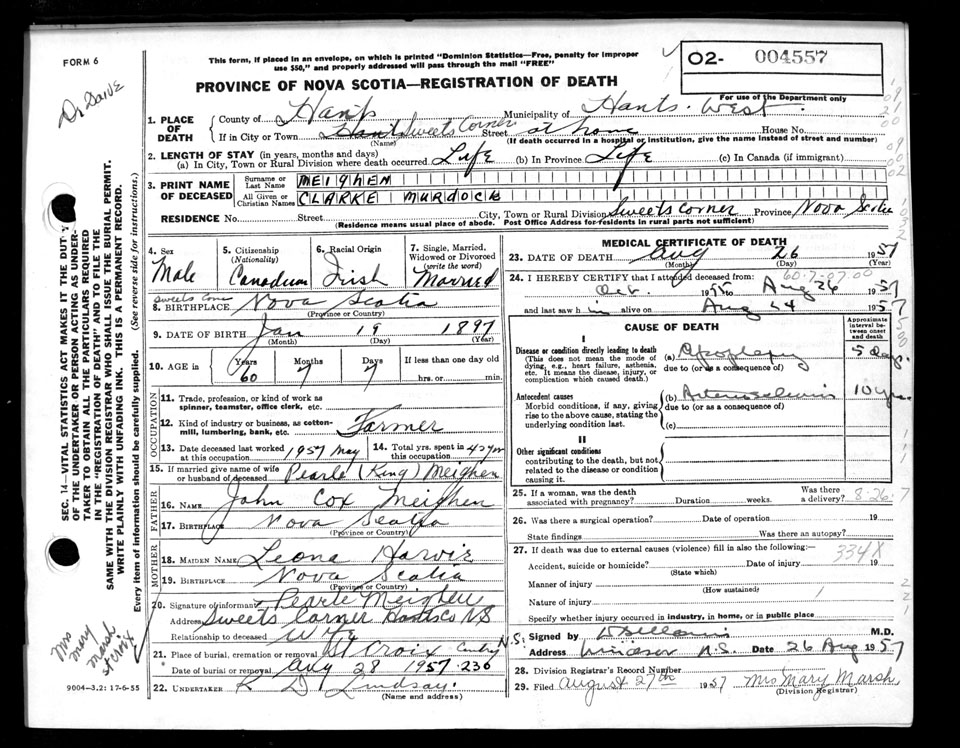 FORM 6
This form, if placed in an envelope, on which is printed "Dominion Statistics—Free, penalty for improper
use $50," and properly addressed will pass through the mail "FREE"
PROVINCE OF NOVA SCOTIA—REGISTRATION OF DEATH
02- 004557
For use of the Department only
1. PLACE OF DEATH
County of Hants Municipality of Hants West
If in City or Town Sweets Corner Street at home House No.
(Name) (If death occurred in a hospital or institution, give the name instead of street and number)
2. LENGTH OF STAY (in years, months and days)
(a) In City, Town or Rural Division where death occurred Life (b) In Province Life (c) In Canada (if immigrant)
3. PRINT NAME OF DECEASED
Surname or Last Name MEIGHEN
All Given or Christian Names CLARKE MURDOCK
RESIDENCE No. Street City, Town or Rural Division Sweets Corner Province Nova Scotia
(Residence means usual place of abode. Post Office Address for residents in rural parts not sufficient)
4. Sex Male
5. Citizenship (Nationality) Canadian
6. Racial Origin Irish
7. Single, Married, Widowed or Divorced (write the word) Married
8. BIRTHPLACE Sweets Corner Nova Scotia
(Province or Country)
9. DATE OF BIRTH Jan 19 1897
(Month) (Day) (Year)
10. AGE in Years 60 Months 7 Days 7 If less than one day old
hrs. or min.
OCCUPATION
11. Trade, profession, or kind of work as
spinner, teamster, office clerk, etc.
12. Kind of industry or business, as cotton-
mill, lumbering, bank, etc. Farmer
13. Date deceased last worked at this occupation 1957 May
14. Total yrs. spent in this occupation 42 yrs
15. If married give name of wife
or husband of deceased Pearle (King) Meighen
FATHER
16. NAME John Cox Meighen
17. BIRTHPLACE Nova Scotia
(Province or Country)
MOTHER
18. MAIDEN NAME Leona Harvie
19. BIRTHPLACE Nova Scotia
(Province or Country)
20. Signature of informant Pearle Meighen
Address Sweets Corner Hants Co N.S.
Relationship to deceased Wife
21. Place of burial, cremation or removal St Croix N.S.
Date of burial or removal Aug 28 1957 230
22. UNDERTAKER K D Lindsay
(Name and address)
MEDICAL CERTIFICATE OF DEATH
23. DATE OF DEATH Aug 26 1957
(Month) (Day) (Year)
24. I HEREBY CERTIFY that I attended deceased from:
Oct. 1955 to Aug 26 1957
and last saw him alive on Aug 24 1957
CAUSE OF DEATH
Approximate interval between onset and death
I
Disease or condition directly leading to death
(This does not mean the mode of
dying, e.g., heart failure, asthenia,
etc. It means the disease, injury, or
complication which caused death.)
(a) Apoplexy 5 days.
due to (or as a consequence of)
Antecedent causes
Morbid conditions, if any, giving
rise to the above cause, stating the
underlying condition last.
(b) Arteriosclerosis 10 yrs.
due to (or as a consequence of)
(c)
II
Other significant conditions
contributing to the death, but not
related to the disease or condition
causing it.
25. If a woman, was the death
associated with pregnancy? Duration weeks. Was there
a delivery?
8-26-7
26. Was there a surgical operation? Date of operation 19
State findings Was there an autopsy?
27. If death was due to external causes (violence) fill in also the following:—
334X
Accident, suicide or homicide? Date of injury 19
(State which)
Manner of injury
(How sustained)
Nature of injury
Specify if injury occurred in industry, in home, or in public place
Signed by M.D.
Address Windsor N.S. Date 26 Aug 1957
28. Division Registrar's Record Number
29. Filed August 27th 1957 Mrs Mary Marsh
(Division Registrar)
SEC. 14—VITAL STATISTICS ACT MAKES IT THE DUTY
OF THE UNDERTAKER OR PERSON ACTING AS UNDER-
TAKER TO OBTAIN ALL THE PARTICULARS REQUIRED
IN THE "REGISTRATION OF DEATH" AND TO FILE THE
SAME WITH THE DIVISION REGISTRAR WHO SHALL ISSUE THE BURIAL PERMIT.
WRITE PLAINLY WITH UNFADING INK. THIS IS A PERMANENT RECORD.
Every item of information should be carefully supplied. (See reverse side for instructions.)
Mrs Mary Marsh St Croix
9004-3.2: 17-6-55